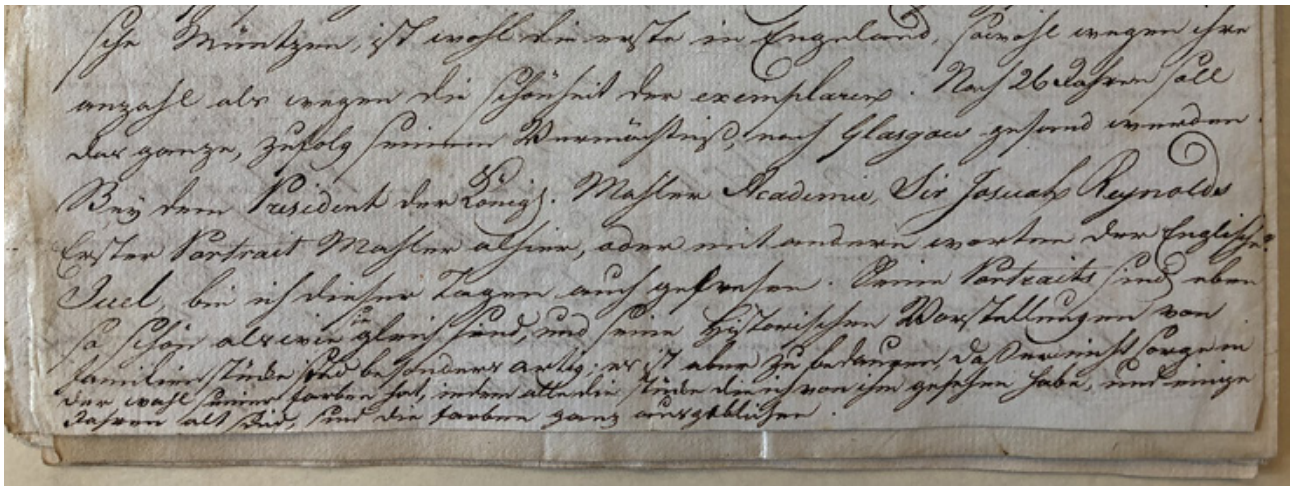 sche Müntzen, ist wohl die erste in Engeland, sowohl wegen ihre
anzahl als wegen die schönheit der exemplaren. Nach 26 Jahren soll
das ganze, zufolg seinem Vermächtniß, nach Glasgow gesand werden.
Bey dem President der Königl. Mahler Academie, Sir Josuah Reynolds
Erster Portrait Mahler alhier, oder mit andern worten der Englische
Juel, bin ich dieser Tagen auch gewesen. Seine Portraits sind eben
so schön als wie gleich sind, und seine Historischen Vorstellungen von
familien stücke sind besonders artig; es ist aber zu bedauren, daß er nicht sorge in
der wahl seiner farben hat, indem alle die stücke die ich von ihm gesehen habe, und einige
Jahren alt sind, sind die farben ganz ausgeblichen.